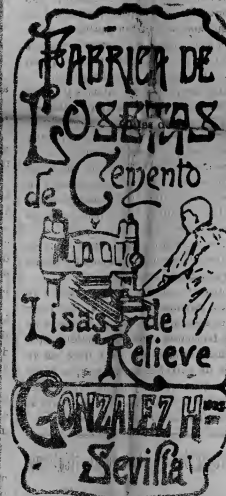 FABRICA DE
LOSETAS
de Cemento
Lisas y de
Relieve
GONZALEZ H<sup>nos</sup>
Sevilla